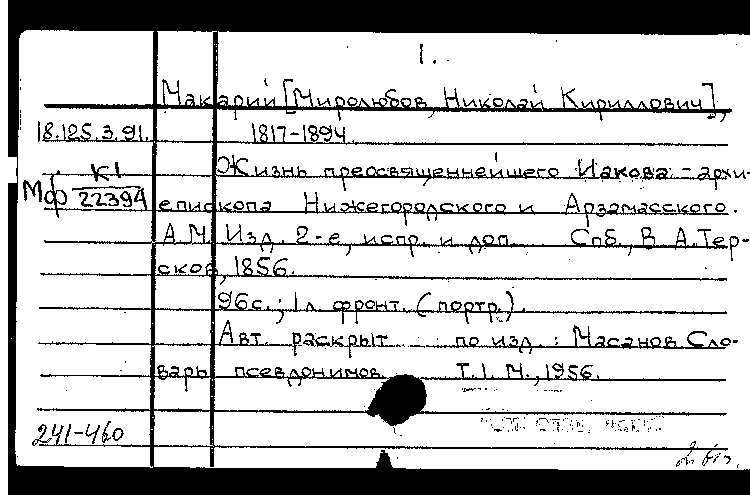 1.
Макарий [Миролюбов, Николай Кириллович],
18.125.3.91. 1817-1894
Жизнь преосвященнейшего Иакова - архи-
Мф К1/22394 епископа Нижегородского и Арзамасского.
А.М. Изд. 2-е, испр. и доп. Спб., В. А. Тер-
сков, 1856.
96с.; 1л фронт. (портр.).
Авт. раскрыт по изд.: Масанов. Сло-
варь псевдонимов. Т.1. М., 1956.
241-460